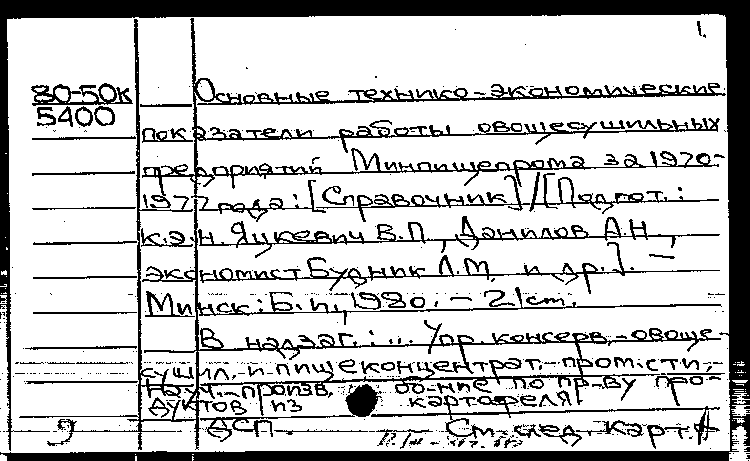 1.
80-50к Основные технико-экономические
5400
показатели работы овощесушильных
предприятий Минпищепрома за 1970-
1977 года: [Справочник] / [Подгот.:
к.э.н. Яцкевич В.П., Данилов А.Н.,
экономист Будник Л.М. и др.]. —
Минск: Б.и., 1980. - 21 cm.
В надзаг.: ... Упр. консерв.-овоще-
сушил. и пищеконцентрат. пром-сти,-
Науч.-произв. об-ние по пр-ву про-
дуктов из картофеля.
9 ДСП. См. след. карт.